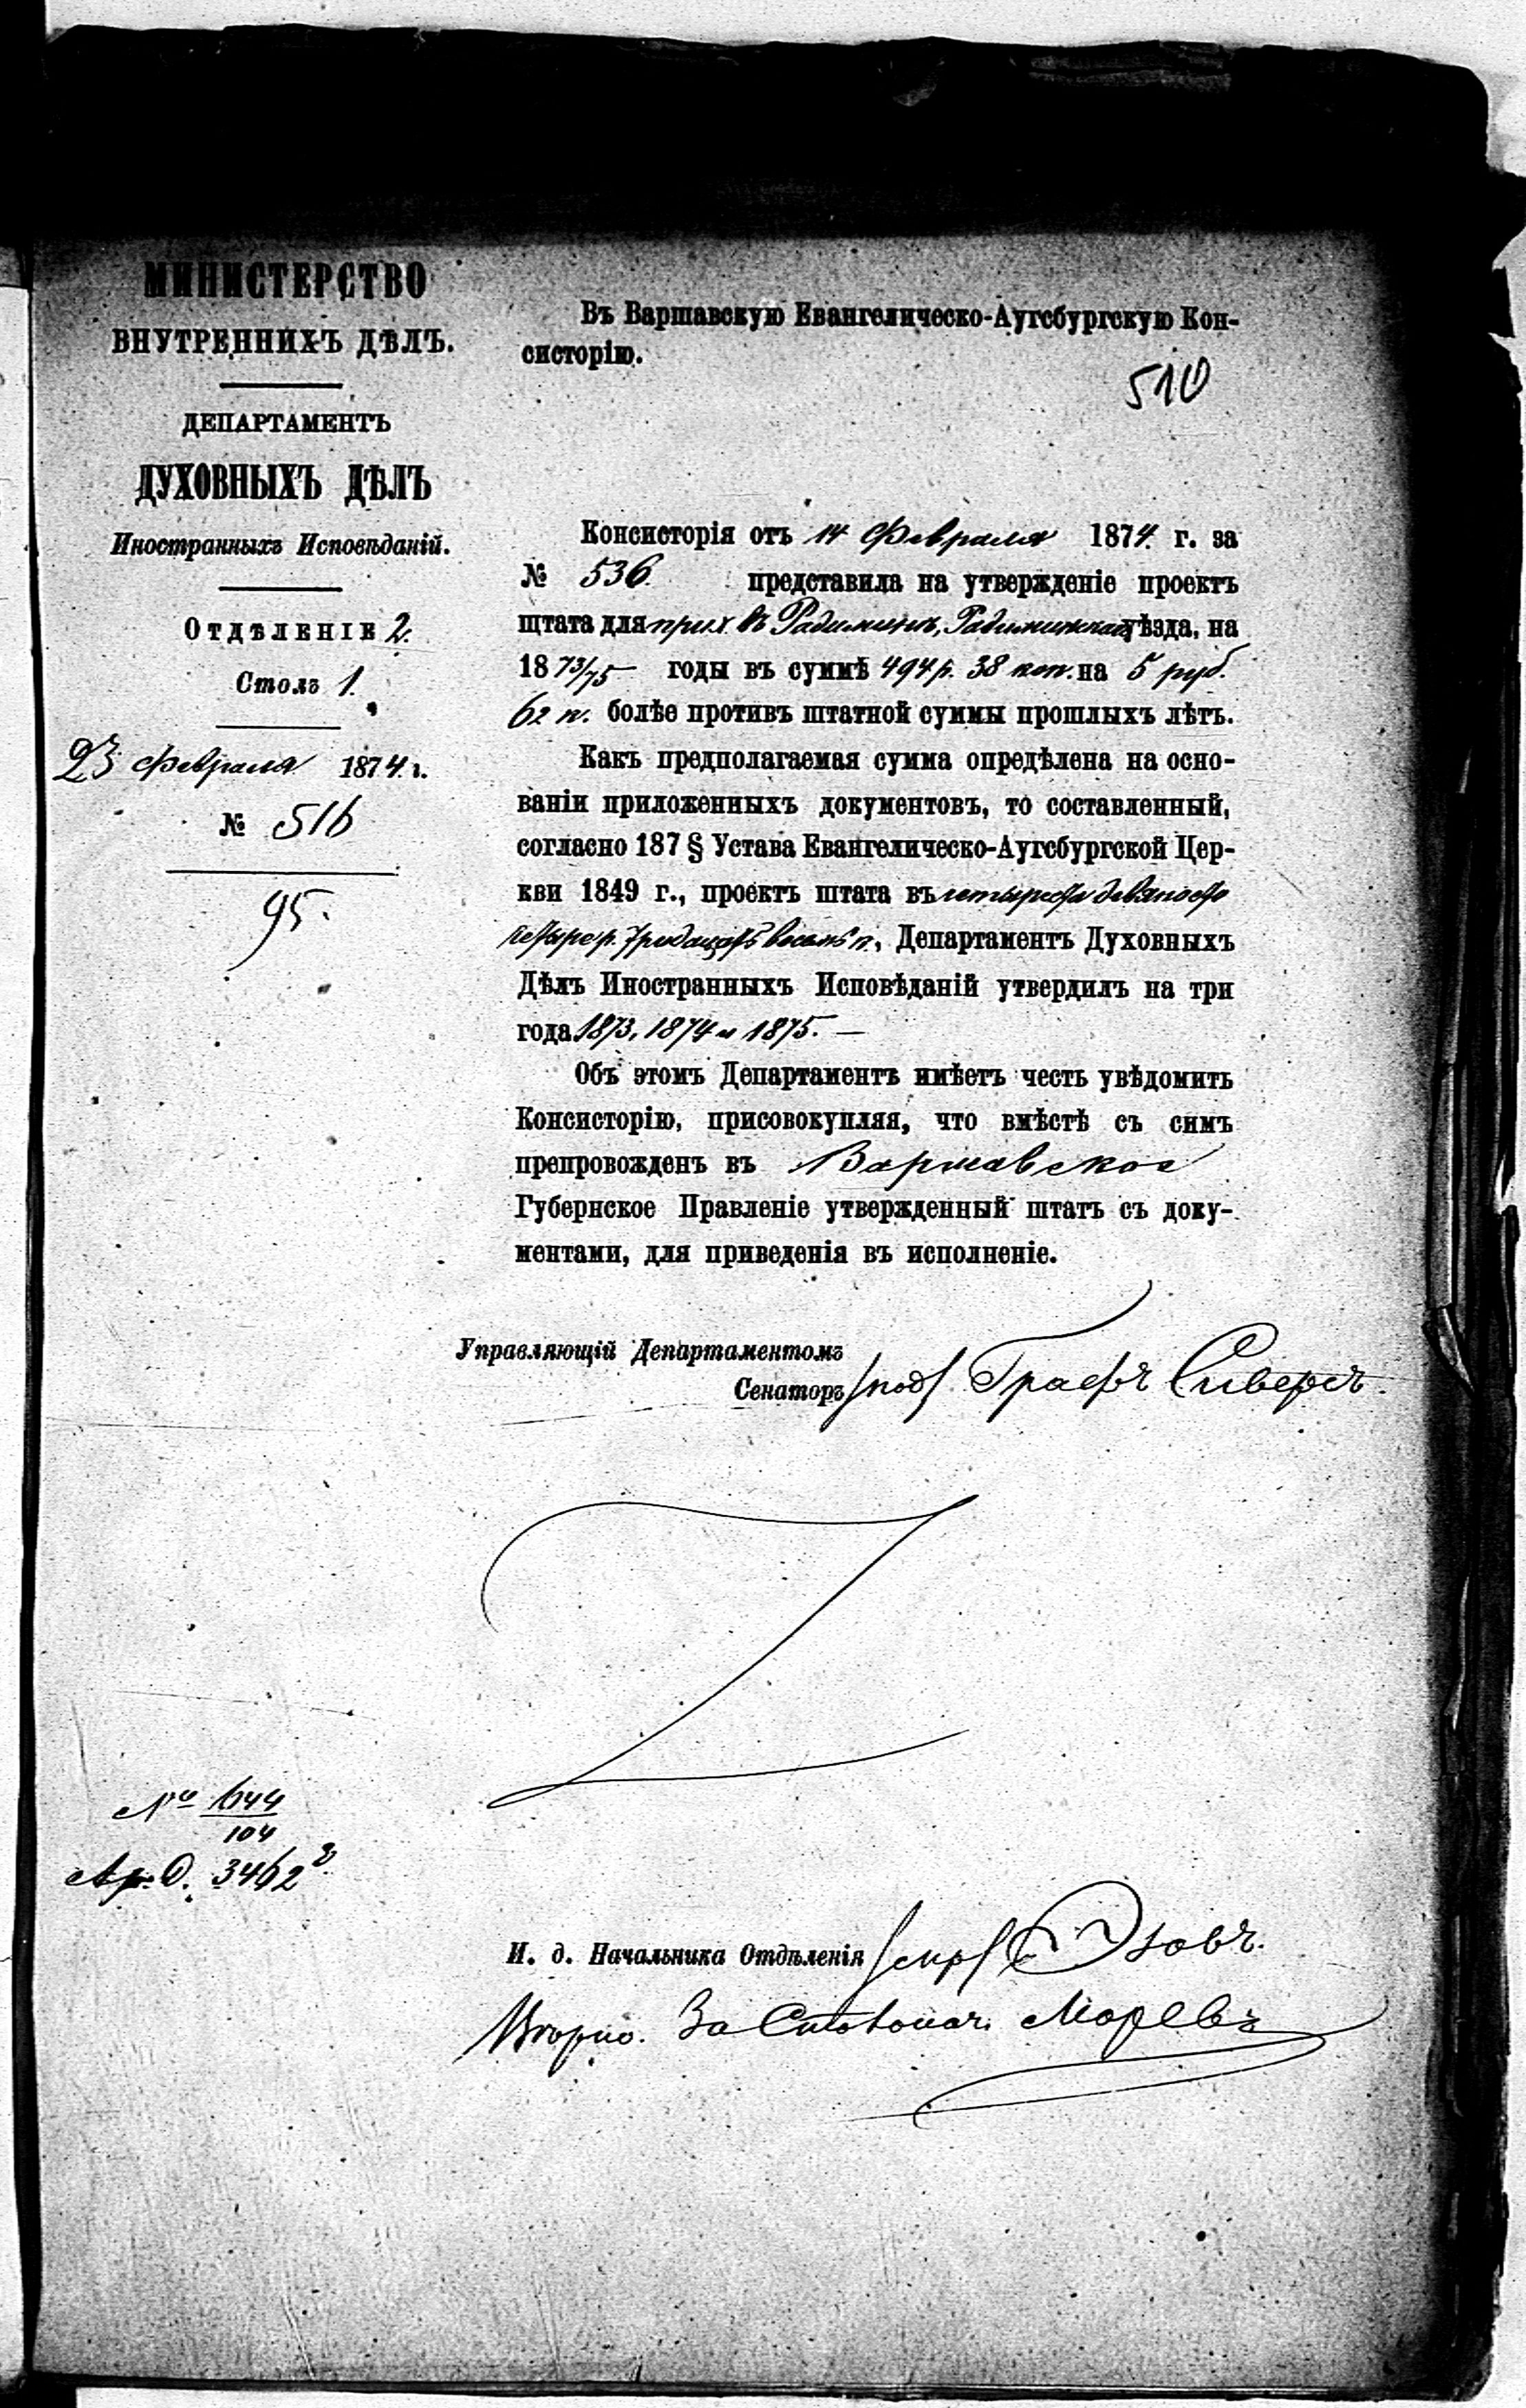 МИНИСТЕРСТВО
ВНУТРЕННИХЪ ДѢЛЪ.
ДЕПАРТАМЕНТЪ
ДУХОВНЫХЪ ДѢЛЪ
Иностранныхъ Исповѣданій.
Отдѣленіе 2.
Столъ 1.
23 февраля 1874 г.
№ 516
95.
Въ Варшавскую Евангелическо-Аугсбургскую Кон-
систорію.
510
Консисторія отъ 14 февраля 1874 г. за
№ 536. представила на утвержденіе проектъ
штата для прих. въ Радиминѣ, Радиминскаго уѣзда, на
1873/75 годы въ суммѣ 494 р. 38 коп. на 5 руб.
62 к. болѣе противъ штатной суммы прошлыхъ лѣтъ.
Какъ предполагаемая сумма опредѣлена на осно-
ваніи приложенныхъ документовъ, то составленный,
согласно 187 § Устава Евангелическо-Аугсбургской Цер-
кви 1849 г., проектъ штата въ четыреста девяносто
четыре р. тридцать восемь к., Департаментъ Духовныхъ
Дѣлъ Иностранныхъ Исповѣданій утвердилъ на три
года 1873, 1874 и 1875. —
Объ этомъ Департаментъ имѣетъ честь увѣдомить
Консисторію, присовокупляя, что вмѣстѣ съ симъ
препровожденъ въ Варшавское
Губернское Правленіе утвержденный штатъ съ доку-
ментами, для приведенія въ исполненіе.
Управляющій Департаментомъ
Сенаторъ /под/ Графъ Сиверсъ.
№ 644
104
3462
И. д. Начальника Отдѣленія /скр/ Эзовъ.
Вѣрно. За Столонач.